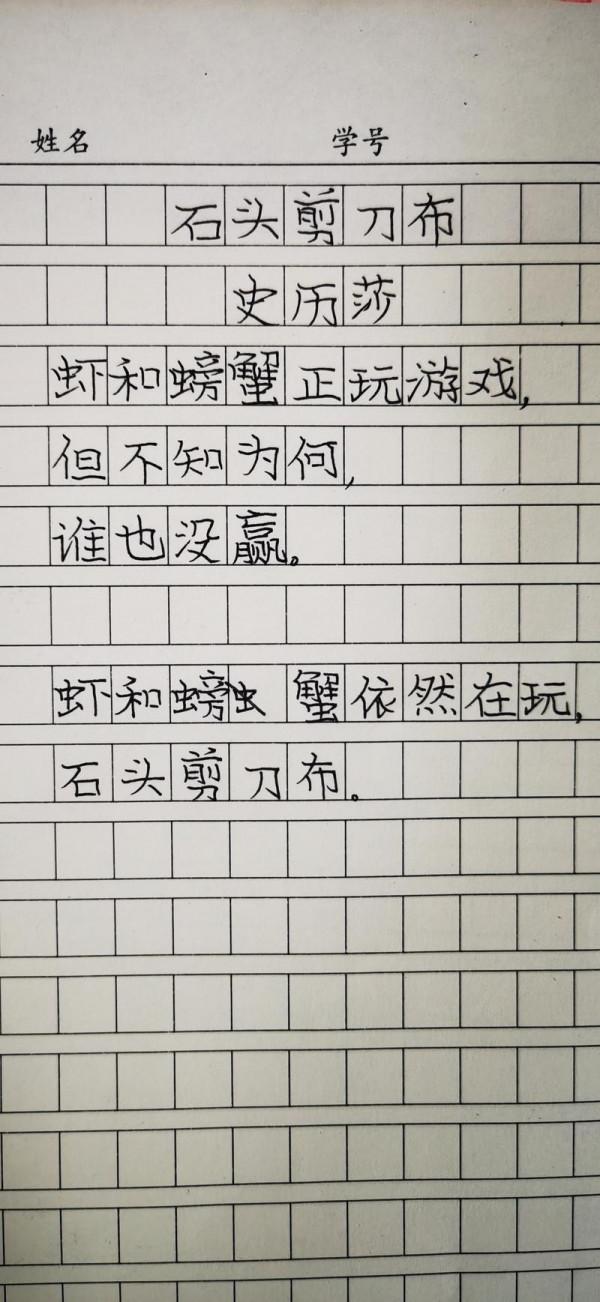 姓名 学号
石头剪刀布
史历莎
虾和螃蟹正玩游戏,
但不知为何,
谁也没赢。
虾和螃虫 蟹依然在玩,
石头剪刀布。